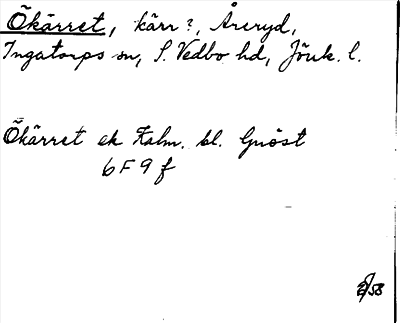 Ökärret, kärr?, Åreryd,
Ingatorps sn, S. Vedbo hd, Jönk. l.
Ökärret ek Kalm. bl. Gnöst
6F9f